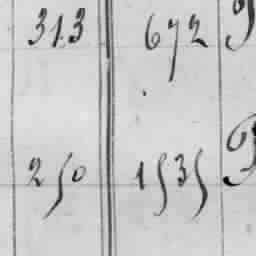 313 672
250 1535